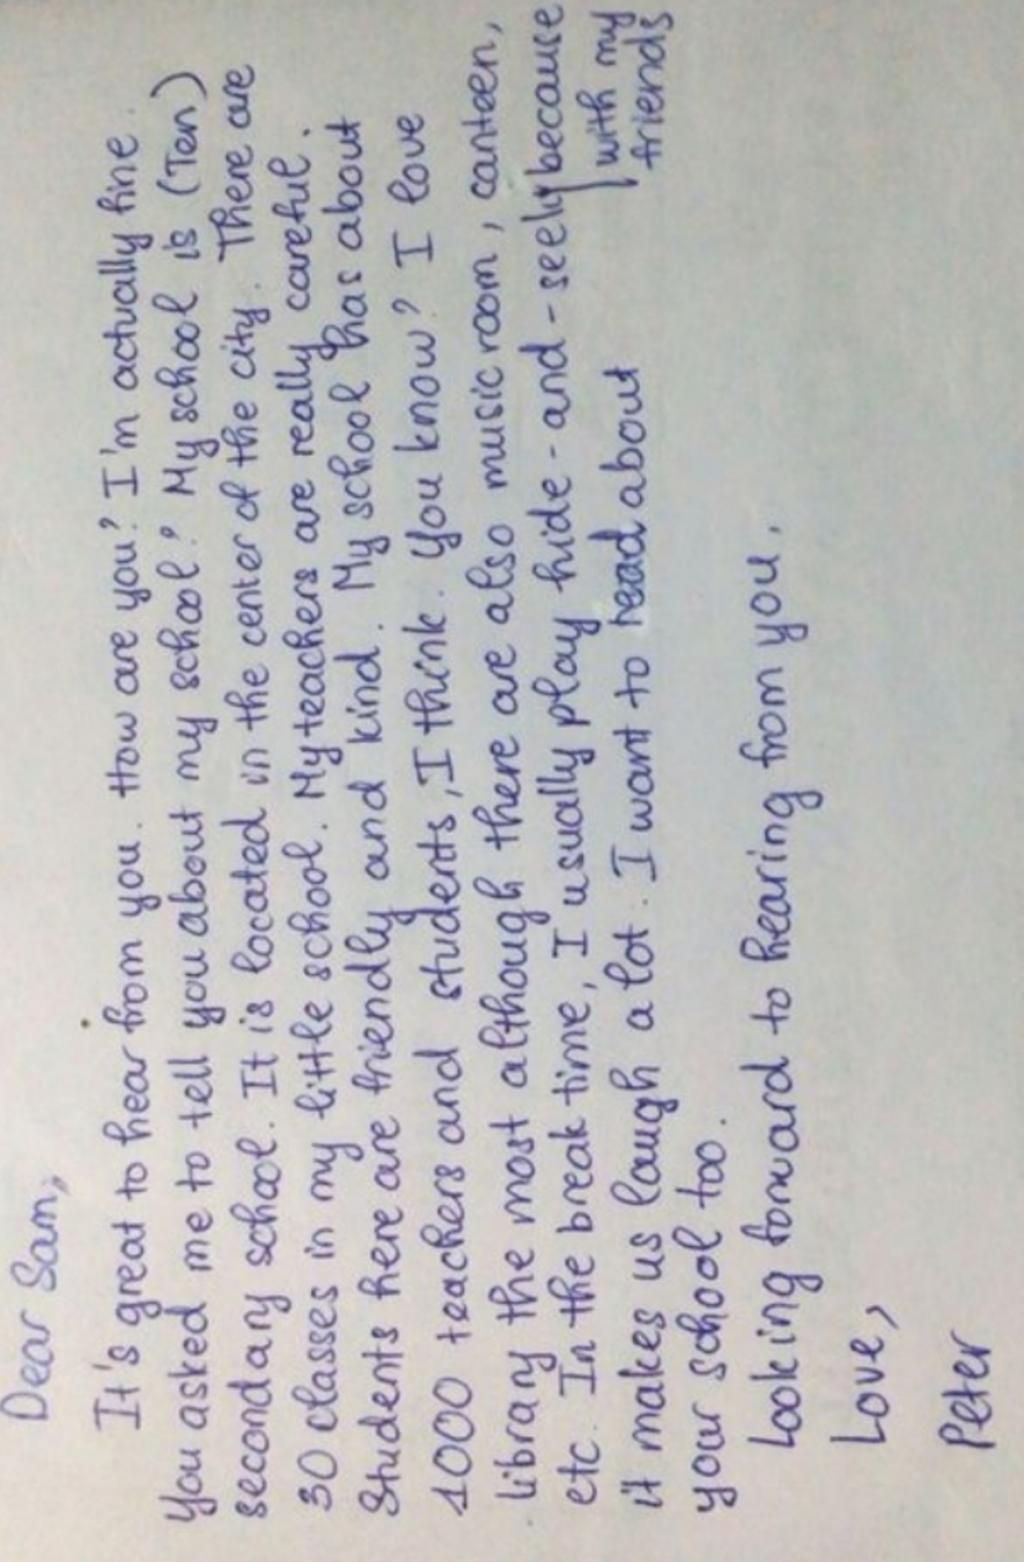 Dear Sam,
It's great to hear from you. How are you? I'm actually fine.
You asked me to tell you about my school? My school is (Ten)
secondary school. It is located in the center of the city. There are
30 classes in my little school. My teachers are really careful.
Students here are friendly and kind. My school has about
1000 teachers and students, I think. You know? I love
library the most although there are also music room, canteen,
etc. In the break time, I usually play hide-and-seek because
with my
friends
it makes us laugh a lot. I want to read about
your school too.
Looking forward to hearing from you.
Love,
Peter